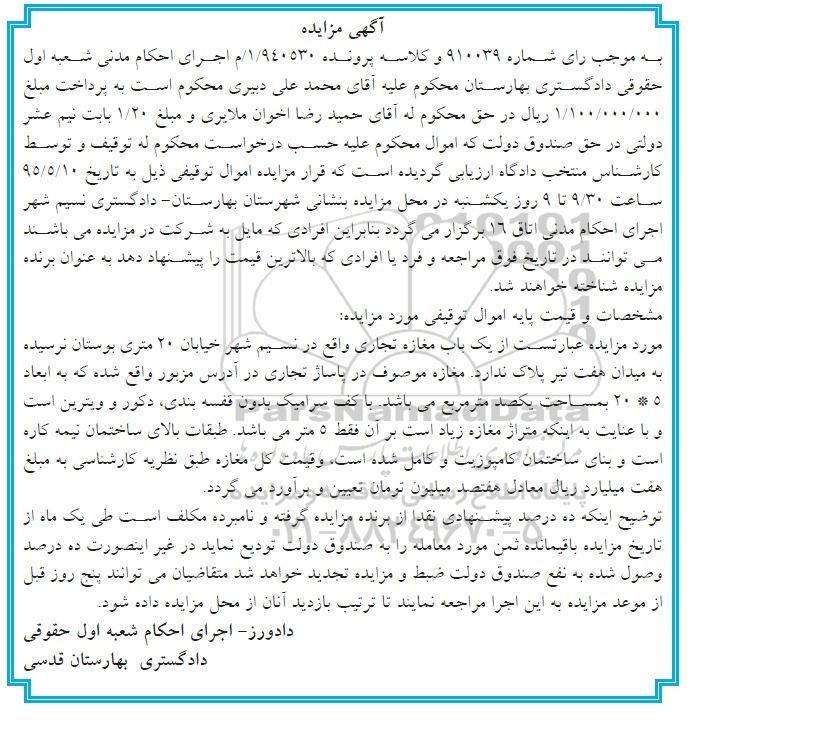 آگهی مزایده
به موجب رای شماره ۹۱۰۰۳۹ و کلاسه پرونده ۱/۹۴۰۵۳۰/م اجرای احکام مدنی شعبه اول
حقوقی دادگستری بهارستان محکوم علیه آقای محمد علی دبیری محکوم است به پرداخت مبلغ
۱/۱۰۰/۰۰۰/۰۰۰ ریال در حق محکوم له آقای حمید رضا اخوان ملایری و مبلغ ۱/۲۰ بابت نیم عشر
دولتی در حق صندوق دولت که اموال محکوم علیه حسب درخواست محکوم له توقیف و توسط
کارشناس منتخب دادگاه ارزیابی گردیده است که قرار مزایده اموال توقیفی ذیل به تاریخ ۹۵/۵/۱۰
ساعت ۹/۳۰ تا ۹ روز یکشنبه در محل مزایده بنشانی شهرستان بهارستان- دادگستری نسیم شهر
اجرای احکام مدنی اتاق ۱۶ برگزار می گردد بنابراین افرادی که مایل به شرکت در مزایده می باشند
می توانند در تاریخ فوق مراجعه و فرد یا افرادی که بالاترین قیمت را پیشنهاد دهد به عنوان برنده
مزایده شناخته خواهند شد.
مشخصات و قیمت پایه اموال توقیفی مورد مزایده:
مورد مزایده عبارتست از یک باب مغازه تجاری واقع در نسیم شهر خیابان ۲۰ متری بوستان نرسیده
به میدان هفت تیر پلاک ندارد. مغازه موصوف در پاساژ تجاری در آدرس مزبور واقع شده که به ابعاد
۵ * ۲۰ بمساحت یکصد مترمربع می باشد. با کف سرامیک بدون قفسه بندی، دکور و ویترین است
و با عنایت به اینکه متراژ مغازه زیاد است بر آن فقط ۵ متر می باشد. طبقات بالای ساختمان نیمه کاره
است و بنای ساختمان کامپوزیت و کامل شده است، وقیمت کل مغازه طبق نظریه کارشناسی به مبلغ
هفت میلیارد ریال معادل هفتصد میلیون ترمان تعیین و برآورد می گردد.
توضیح اینکه ده درصد پیشنهادی نقدا از برنده مزایده گرفته و نامبرده مکلف است طی یک ماه از
تاریخ مزایده باقیمانده ثمن مورد معامله را به صندوق دولت تودیع نماید در غیر اینصورت ده درصد
وصول شده به نفع صندوق دولت ضبط و مزایده تجدید خواهد شد متقاضیان می توانند پنج روز قبل
از موعد مزایده به این اجرا مراجعه نمایند تا ترتیب بازدید آنان از محل مزایده داده شود.
دادورز- اجرای احکام شعبه اول حقوقی
دادگستری بهارستان قدسی
ParsNamadData
پایگاه اطلاع رسانی مناقصه و مزایده
۰۲۱-۸۸۳۴۹۶۷۰-۵